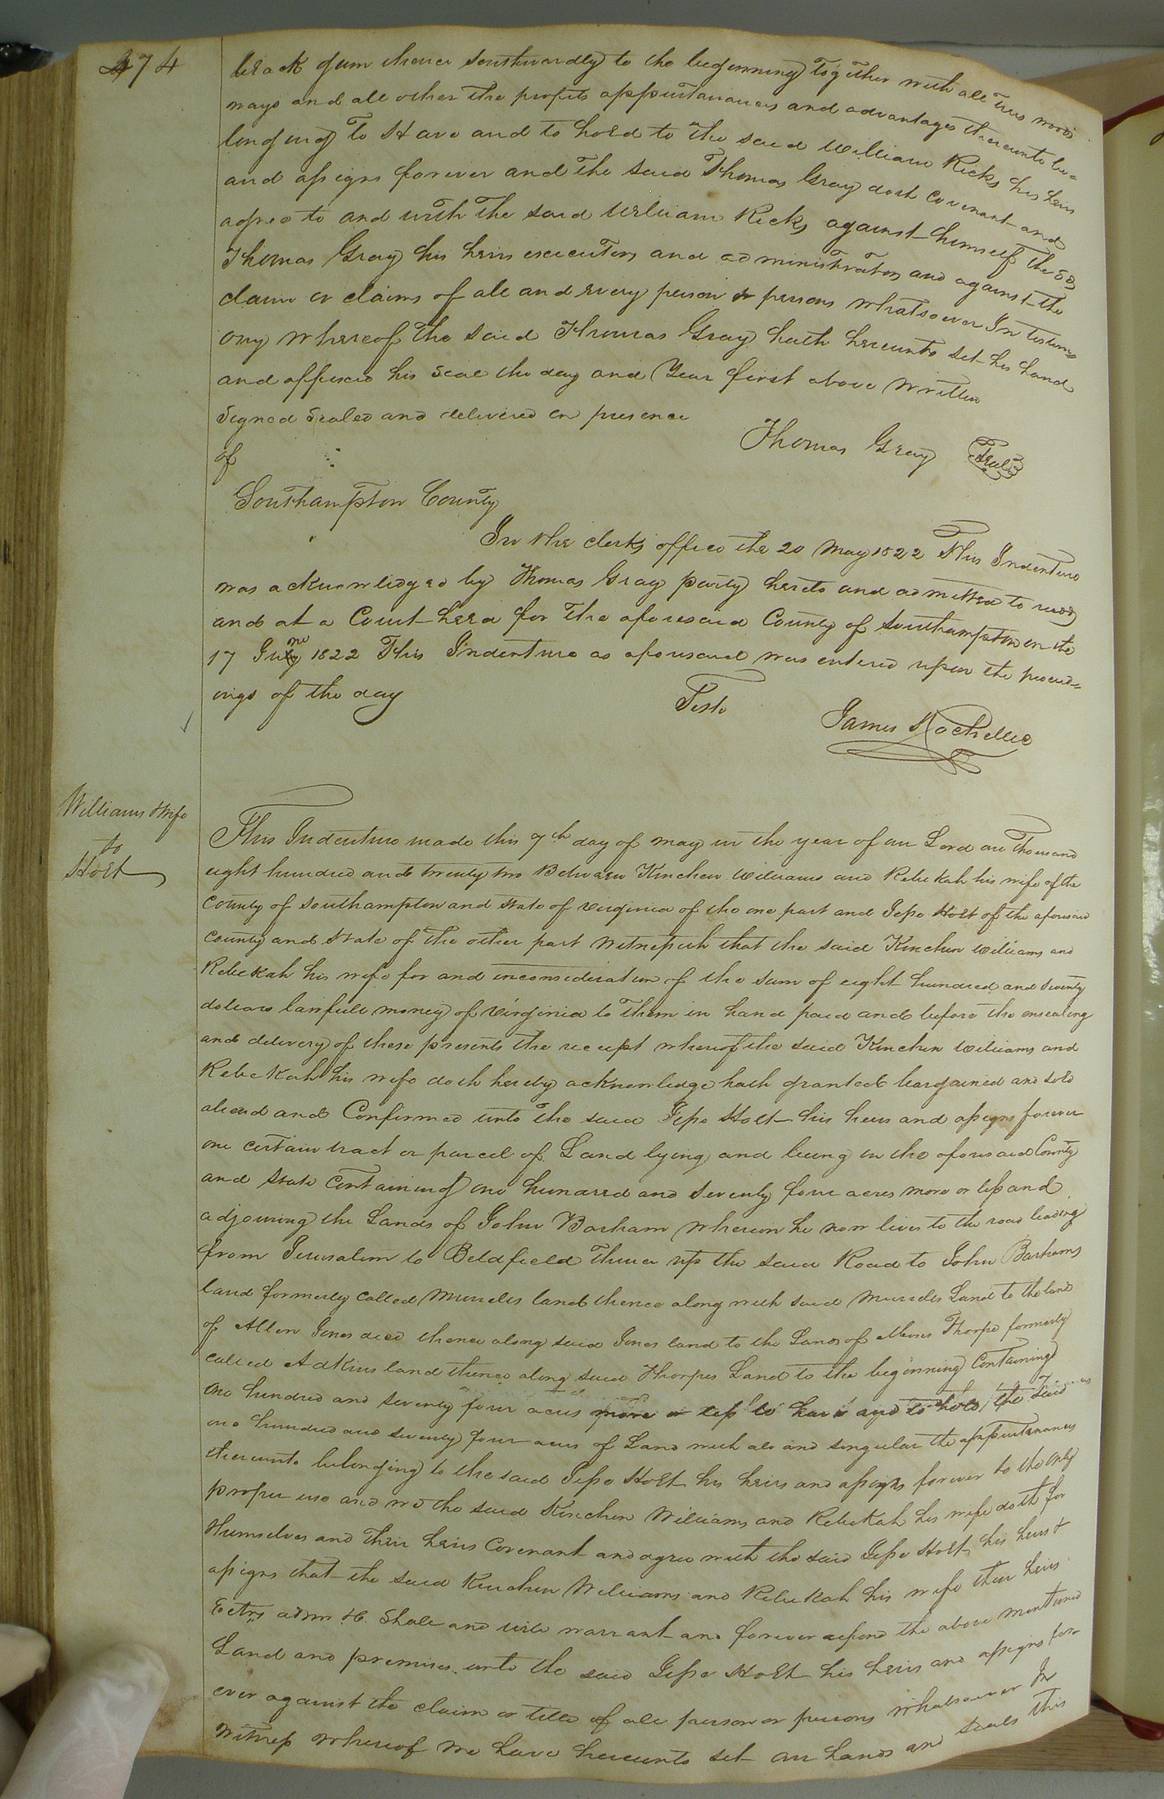 474
black gum thence southwardly to the beginning together with all woods
ways and all other the profits appurtanances and advantages thereunto be=
longing To Have and to hold to the said William Ricks his heirs
and assigns forever and the said Thomas Gray doth covenant and
agree to and with the said William Ricks against himself the sd
Thomas Gray his heirs executors and administrators and against the
claim or claims of all and every person or persons whatsoever In testim
ony whereof the said Thomas Gray hath hereunto set his hand
and affixed his seal the day and Year first above written
Signed Sealed and delivered in presence
of
Thomas Gray Seal
Southampton County
In the clerks office the 20 May 1822 This Indenture
was acknowledged by Thomas Gray party hereto and admitted to record
and at a Court held for the aforesaid County of Southampton on the
17 June 1822 This Indenture as aforesaid was entered upon the proceed=
ings of the day
Teste
James Rochelle
Williams & Wife
to
Holt
This Indenture made this 7th day of may in the year of our Lord one Thousand
eight hundred and twenty two Between Kinchen Williams and Rebekah his wife of the
County of Southampton and State of Virginia of the one part and Jesse Holt of the aforesaid
County and State of the other part Witnesseth that the said Kinchen Williams and
Rebekah his wife for and inconsideration of the sum of eight hundred and seventy
dollars lawfull money of Virginia to Them in hand paid and before the ensealing
and delivery of these presents the receipt whereof the said Kinchen Williams and
Rebekah his wife doth hereby acknowledge hath granted bargained and sold
aliend and Confirmed unto the said Jesse Holt his heirs and assigns forever
one certain tract or parcel of Land lying and being in the aforesaid County
and State Containing one hundred and seventy four acres more or less and
adjoining the Lands of John Barham whereon he now lives to the road leading
from Jerusalem to Beldfield Thence up the said Road to John Barhams
land formerly called land thence along with said Land to the land
of Allen Jones decd thence along said Jones land to the Lands of Moses Thorpe formerly
called Adkins land thence along said Thorpes Land to the beginning Containing
one hundred and seventy four acres more or less to have and to hold the said
one hundred and seventy four acres of Land with all and singular the appurtenances
thereunto belonging to the said Jesse Holt his heirs and assigns forever to the only
proper use and we the said Kinchen Williams and Rebekah his wife doth for
themselves and their heirs Covenant and agree with the said Jesse Holt his heirs &
assigns that the said Kinchen Williams and Rebekah his wife their heirs
Exctrs admrs &c. Shall and will warrant and forever defend the above mentioned
Land and premises unto the said Jesse Holt his heirs and assigns for
ever against the claim or title of all person or persons whatsoever In
Witness whereof we have hereunto set our hands and seals this